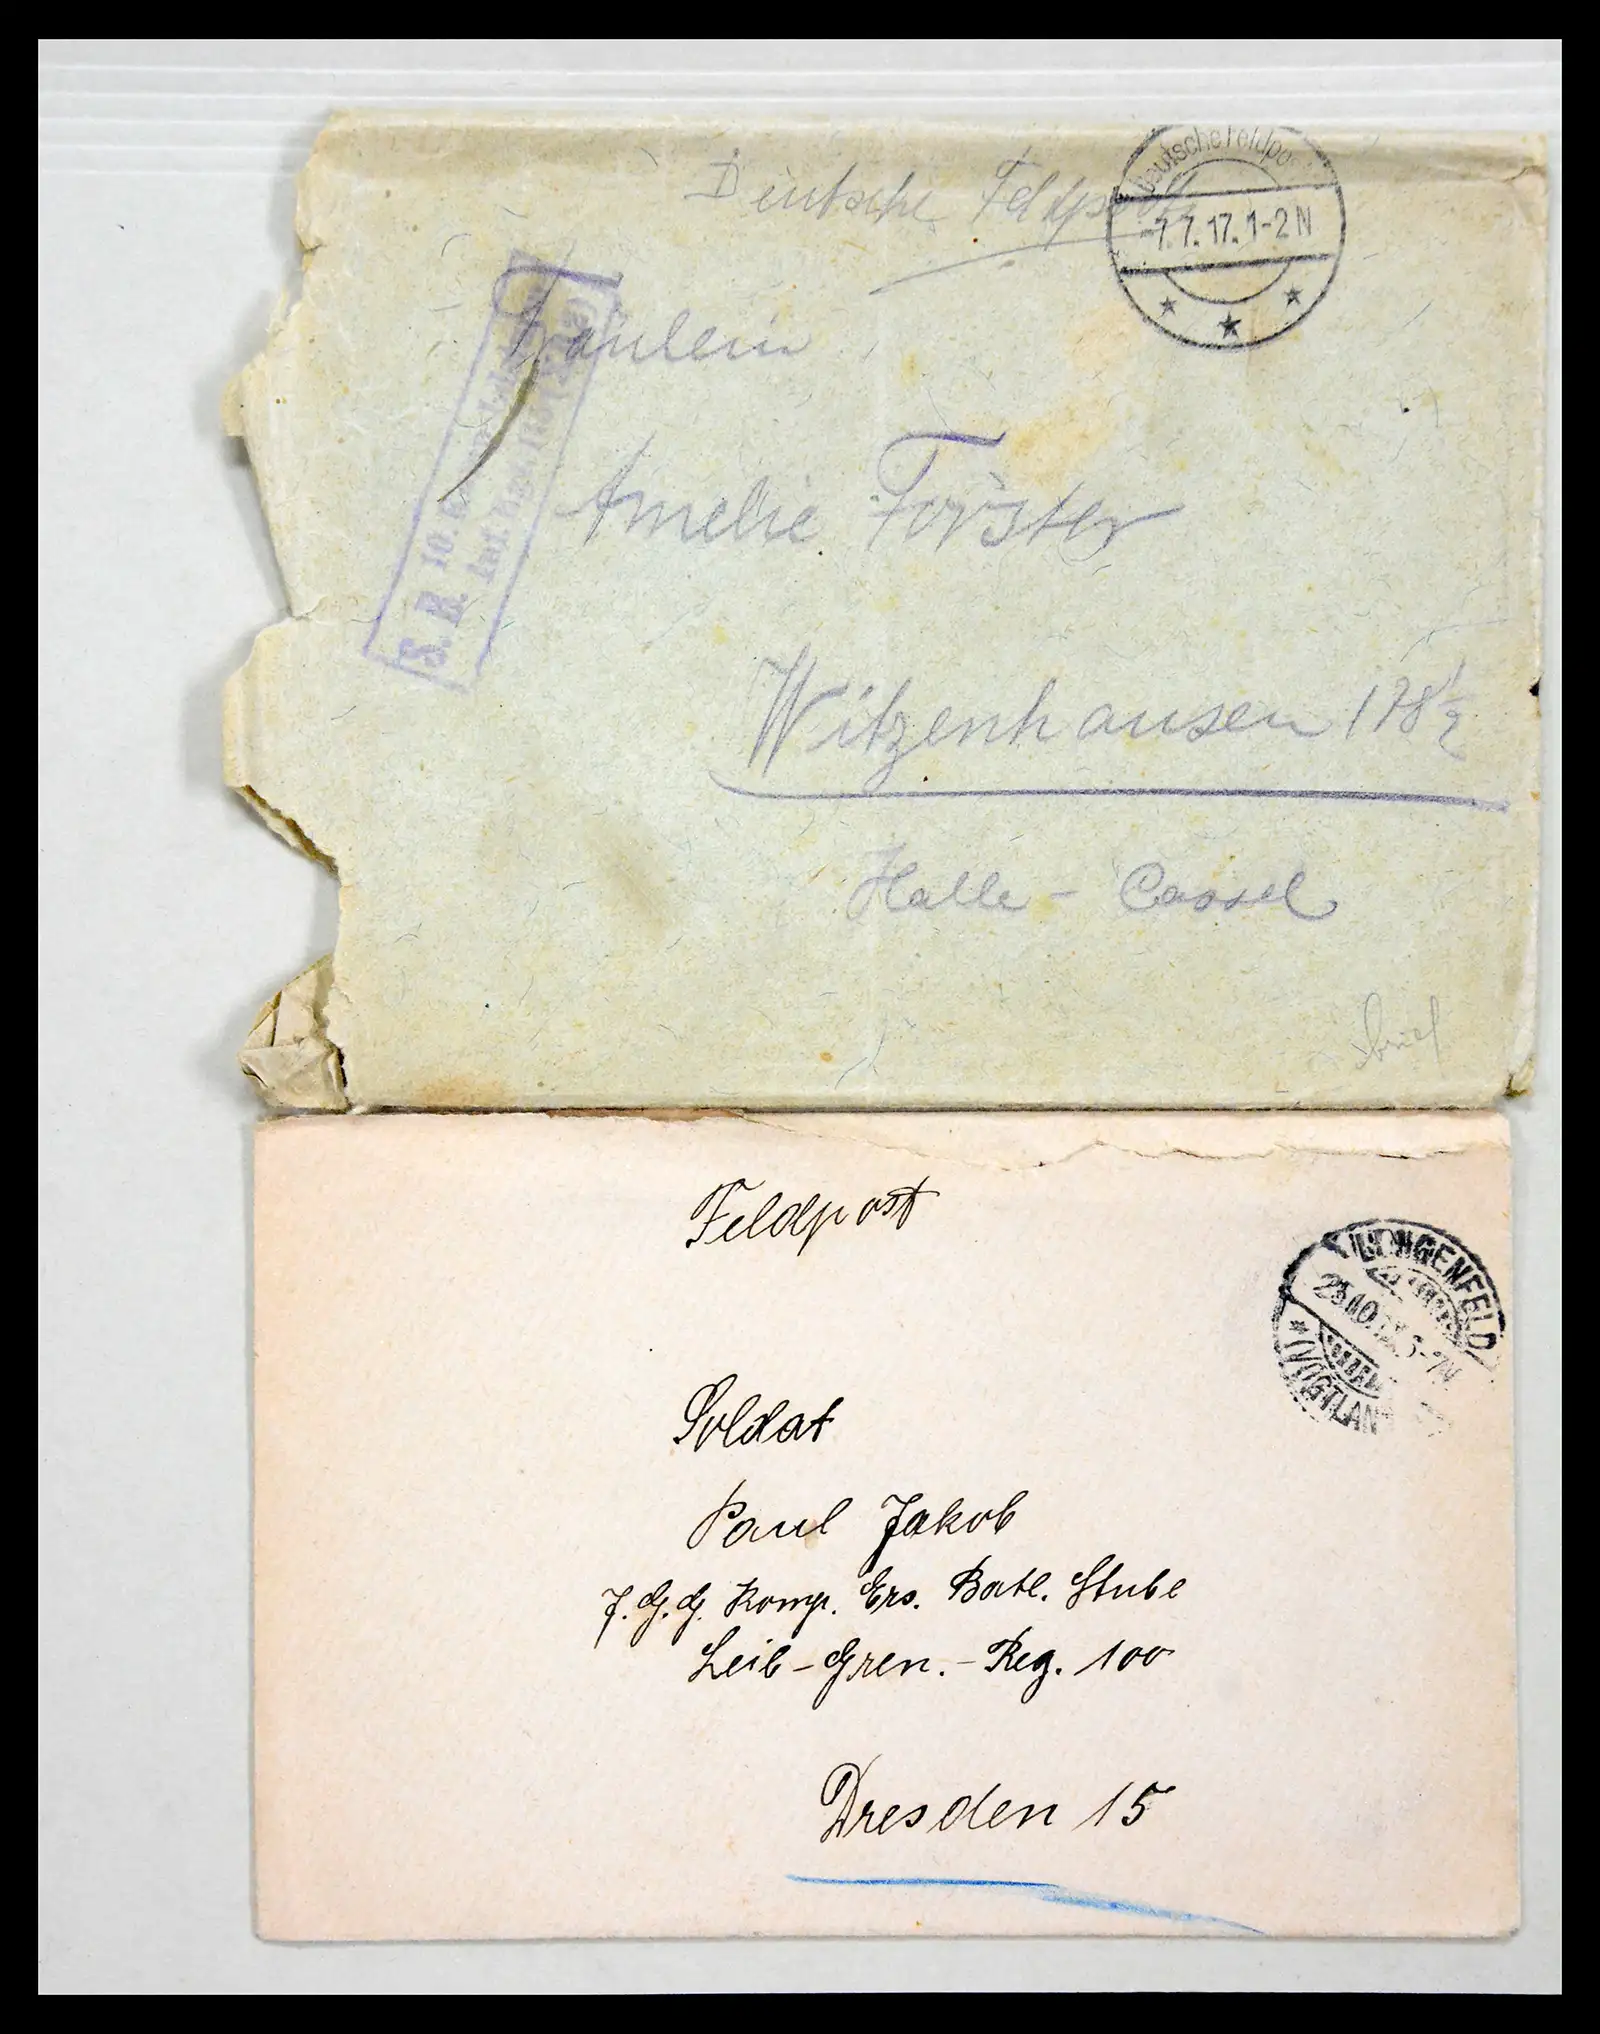 Deutsche Feldpost
Deutsche Feldpost
-7.7.17.1-2N
Fräulein
S. B. 10.
Inf. Reg.
Amelie Förster
Witzenhausen 178½
Halle - Cassel
brief
Feldpost
LENGENFELD
25.10. 6-7N
(VOGTLAND)
Soldat
Paul Jakob
J. G. G. Komp. Ers. Batl. Stube
Leib-Gren.-Reg. 100
Dresden 15